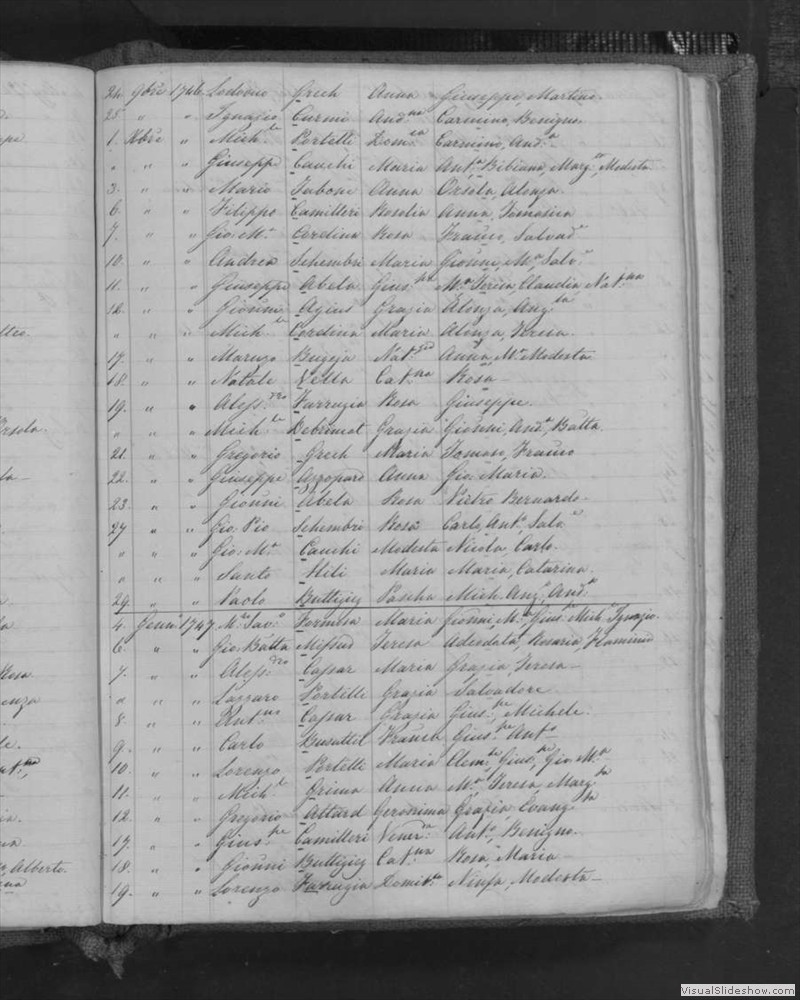 24. 9bre 1746 Lodovico Grech Anna Giuseppe Martino.
25. " " Ignazio Curmi And.na Carmino, Benigno.
1. Xbre " Mich.le Portelli Dom.ca Carmino, And.a
" " " Giuseppe Cauchi Maria Ant.a Bibiana, Marg.ta, Modesta.
3. " " Mario Tabone Anna Orsola, Alonza.
6. " " Filippo Camilleri Rosolia Anna, Tomasica
7. " " Gio: M.a Cordina Rosa Franco, Salvad.e
10. " " Andrea Schembri Maria Gionni, M.a Salv.e
11. " " Giuseppe Abela Gius.pa M.a Teresa, Claudia, Nat.na
12. " " Gionni Agius Grazia Alonza, Ang.la
" " " Mich.le Cordina Maria Alonza, Teresa.
17. " " Maruzo Bugeja Nat. Anna, M.a Modesta
18. " " Natale Vella Cat.na Rosa
19. " " Aless.dro Farrugia Rosa Giuseppe.
" " " Mich.le Debrincat Grazia Gionni, Ant.o, Batta.
21. " " Gregorio Grech Maria Tomaso, Franco
22. " " Giuseppe Azzopard Anna Gio: Maria.
23. " " Gionni Abela Rosa Pietro Bernardo
27 " " Gio: Pio Schembri Rosa Carlo, Ant.o Salv.e
" " " Gio: M.a Cauchi Modesta Nicola, Carlo.
" " " Santo Hili Maria Maria, Catarina.
29. " " Paolo Buttigieg Pascha Mich. Ang.o, And.a
4. Genn.o 1747. M.ro Sav.o Formosa Maria Gionni M.a, Gius.pe Mich.e Ignazio.
6. " " Gio: Batta Mifsud Teresa Adeodata, Rosaria, Flaminia
7. " " Aless.dro Cassar Maria Grazia, Teresa
" " " Lazzaro Portelli Grazia Salvadore.
8. " " Ant.no Cassar Grazia Gius.pe, Michele.
9. " " Carlo Busuttil Franca Gius.pe Ant.o
10. " " Lorenzo Portelli Maria Clem.te, Gius.pe, Gio: M.a
11. " " Mich.le Grima Anna M.a, Teresa, Marg.ta
12. " " Gregorio Attard Geronima Grazia, Evang.ta
17. " " Gius.pe Camilleri Vener.a Ant.o, Benigno.
18. " " Gionni Buttigieg Cat.na Rosa, Maria
19. " " Lorenzo Farrugia Domit.a Ninfa, Modesta
Alberto.
VisualSlideshow.com